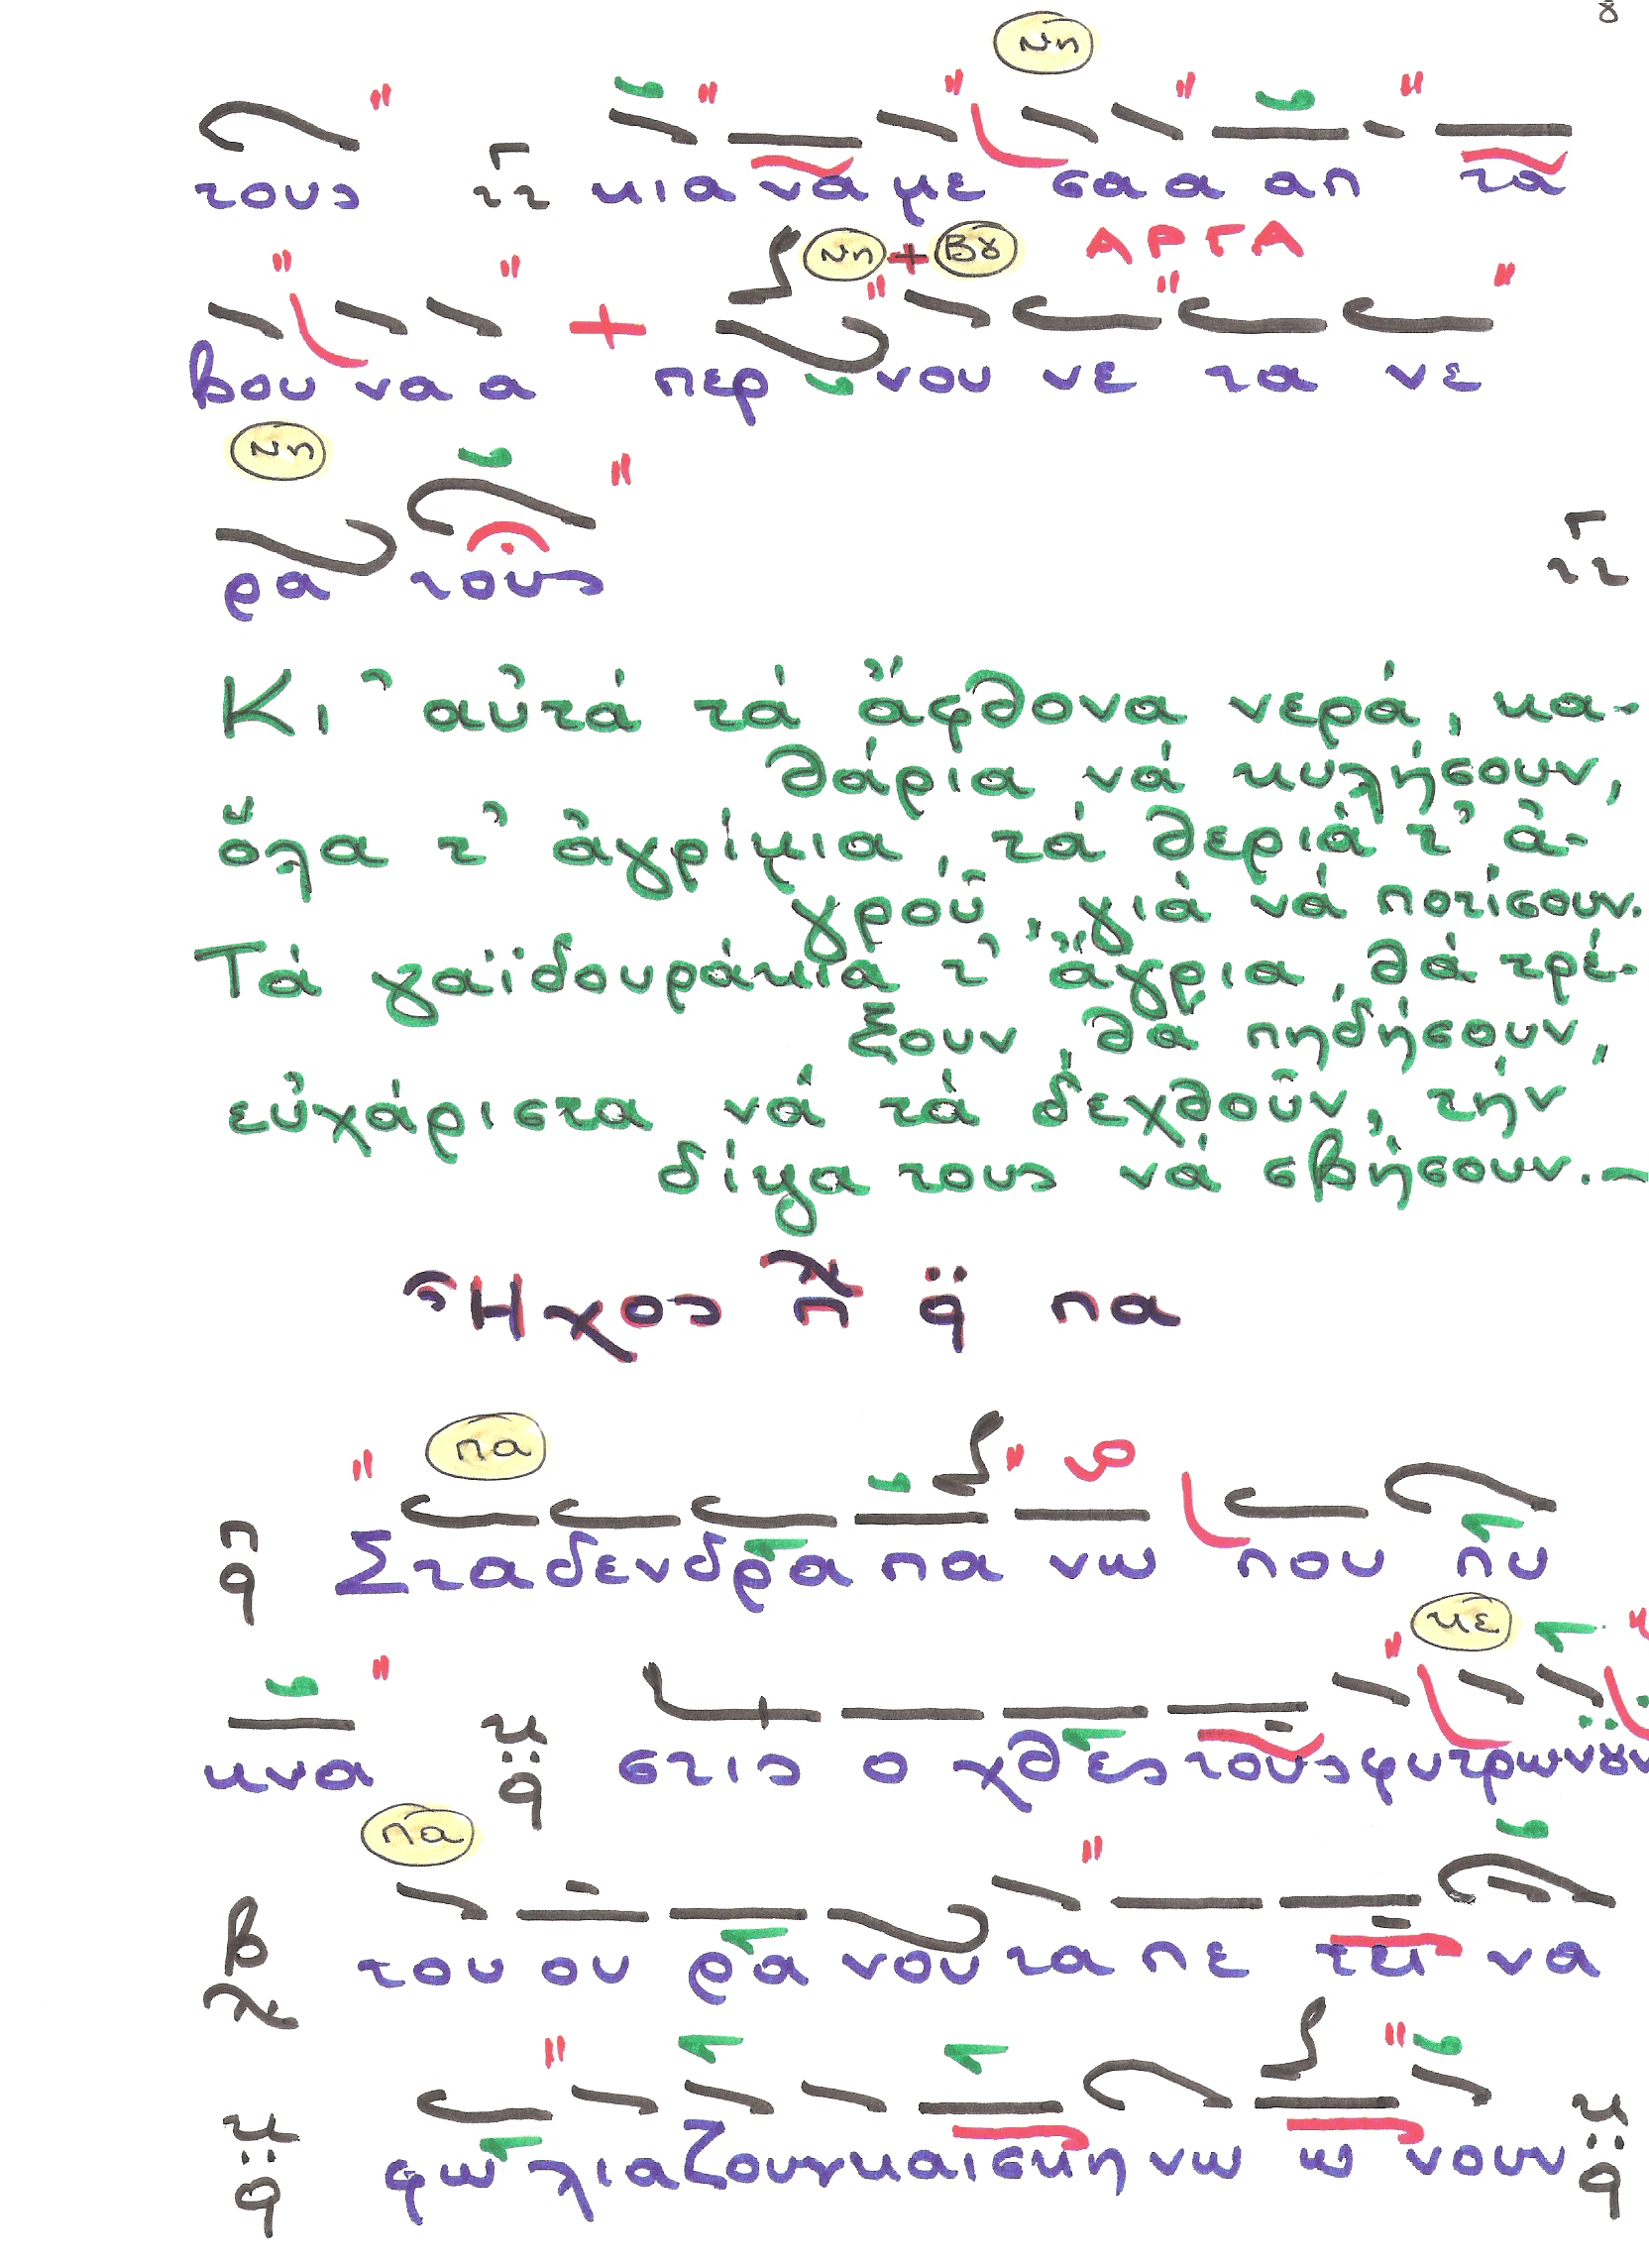 ȣ
Νη
τους κια να με σα α απ τα
Νη + Βȣ ΑΡΓΑ
βου να α + περ νου νε τα νε
Νη
ρα τους
Κι ᾿ αὐτά τά ἄφθονα νερά, κα-
θάρια νά κυλήσουν,
ὅλα τ᾿ ἀγρίμια, τά θεριά τ᾿ ἀ-
γροῦ, γιά νά ποτίσουν.
Τά γαϊδουράκια τ᾿ ἄγρια, θά τρέ-
ξουν, θά πηδήσουν,
εὐχάριστα νά τά δεχθοῦν, τήν
δίψα τους νά σβήσουν.-
Ἦχος λ π q πα
πα
π q Στα δεν δρα πα νω που πυ
κε
κνα κ q στις ο χθες τους φυτρωνȣν
πα
β λ του ου ρα νου τα πε τει να
κ q φω λια ζουν και σκη νω ω νουν κ q